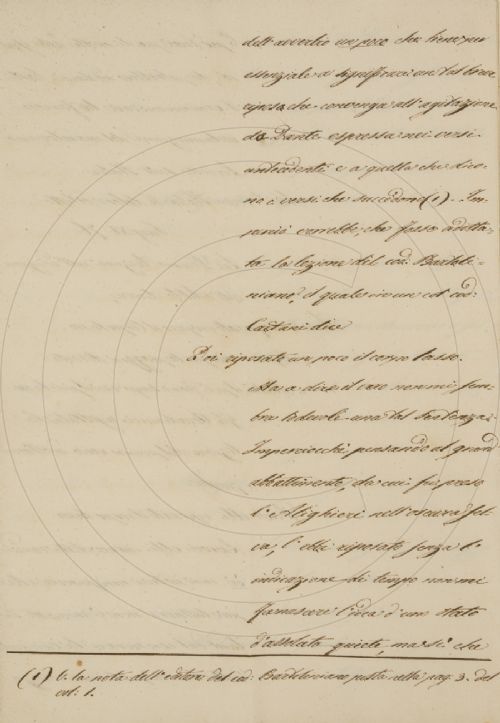 dell'avverbio un poco che viene per
essenziale a significarci un tal breve
riposo che convenga all'agitazione
di Dante espressa nei versi
antecedenti e a quella che dico-
no i versi che succedono (1). Im-
perciò vorrebbe, che fosse adotta-
ta la lezione del cod: Bartoli-
niano, il quale in un col cod:
Caetani dice
Poi riposato un poco il corpo lasso.
Ma a dire il vero non mi sem-
bra lodevole una tal sentenza.
Imperciocchè pensando al grand
abbattimento, da cui fu preso
l'Alighieri nell'oscura sel-
va, l'ebbi riposato senza l'
indicazione di tempo non mi
l'idea d'uno stato
d'assoluta quiete, ma sì che
(1) V. la nota dell'editore del cod: Bartoliniano posta alla pag. 3. del
vol: 1.